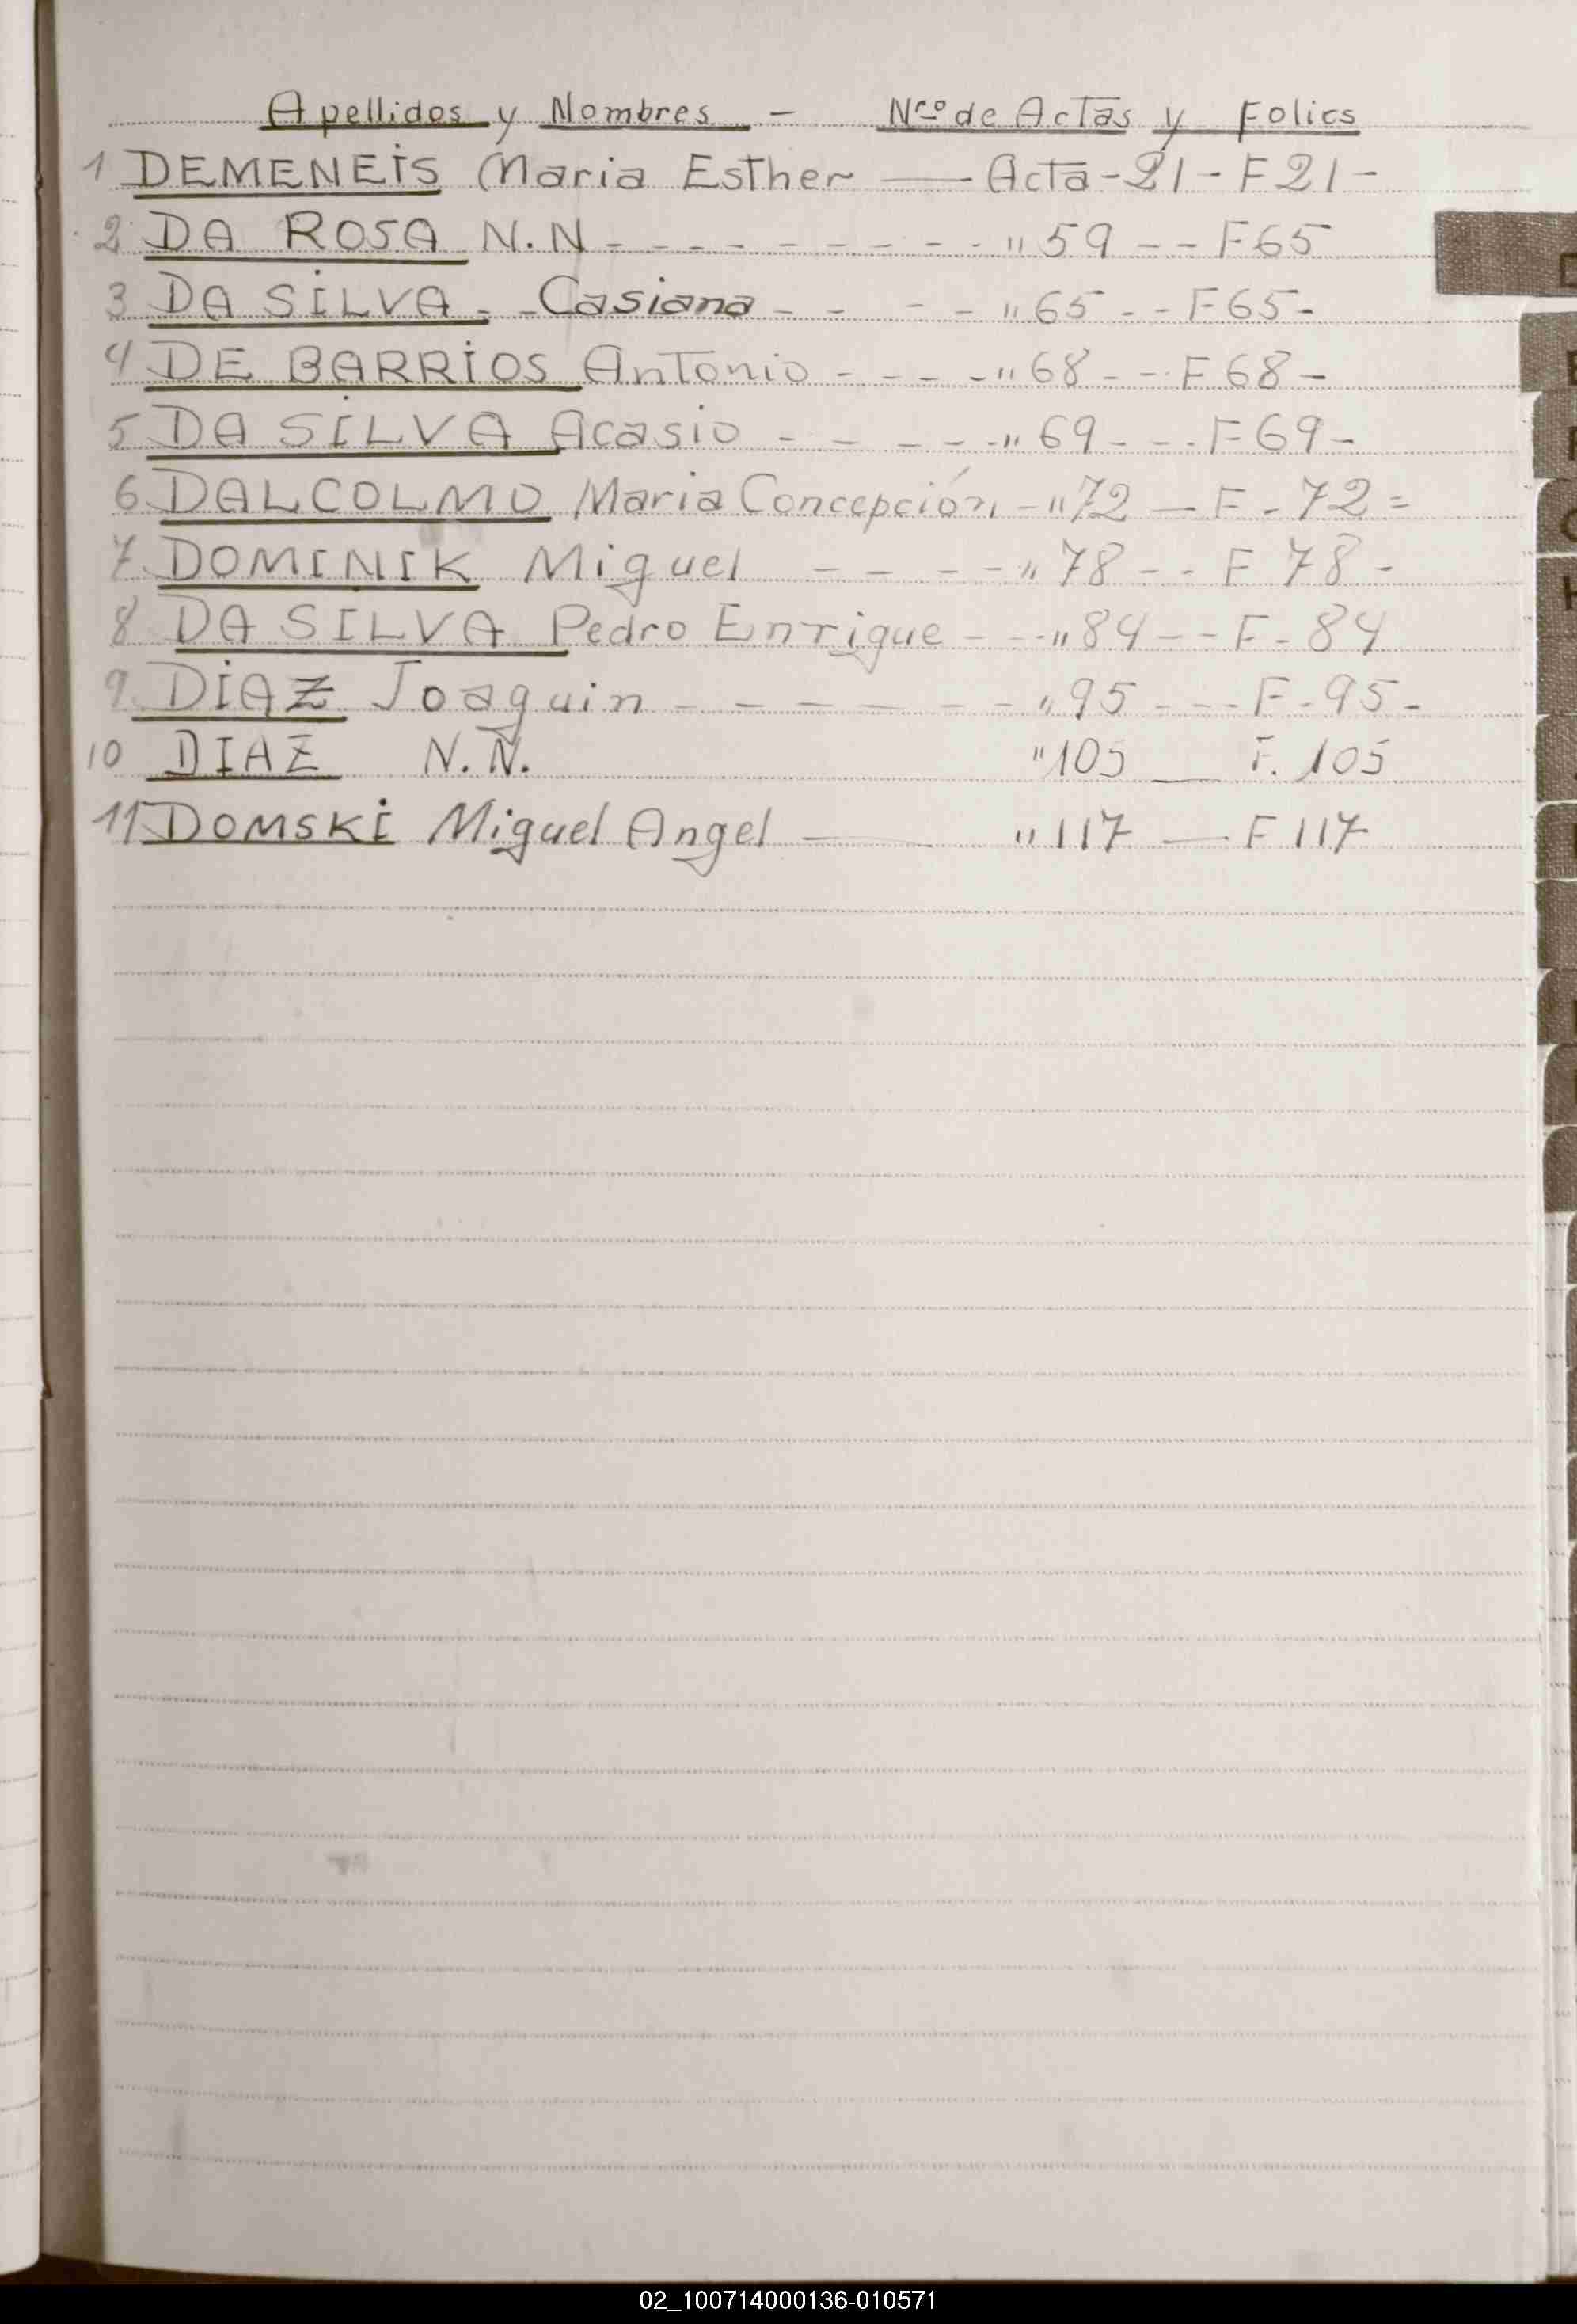 Apellidos y Nombres - Nro de Actas y Folios
1 DEMENEIS Maria Esther — Acta - 21 - F 21 -
2 DA ROSA N.N - - - - - - - - " 59 - - F 65
3 DA SILVA - - Casiana - - - - " 65 - - F 65 -
4 DE BARRIOS Antonio - - - - " 68 - - F 68 -
5 DA SILVA Acasio - - - - - " 69 - - - F 69 -
6 DALCOLMO Maria Concepción - " 72 — F - 72 =
7 DOMINIK Miguel - - - - " 78 - - F 78 -
8 DA SILVA Pedro Enrique - - - " 84 - - F - 84
9 DIAZ Joaquin - - - - - - - " 95 - - - F - 95 -
10 DIAZ N.N. " 105 — F. 105
11 DOMSKI Miguel Angel — " 117 — F 117
D
E
F
G
H
02_100714000136-010571